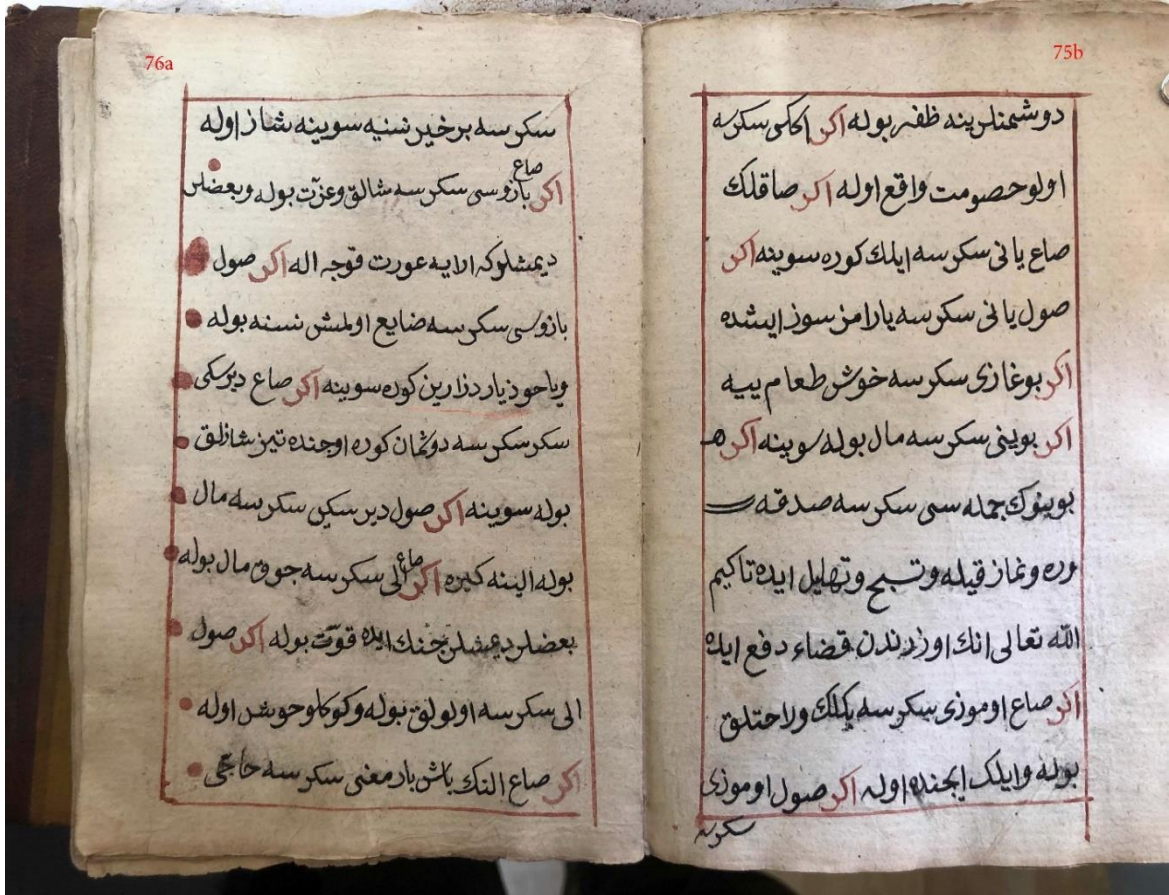 75b
دوشمنلرینه ظفر بوله اکر اککی سکرسه
اولو حصومت واقع اوله اکر صاقلك
صاع یانی سکرسه ایلك کوره سوینه اکر
صول یانی سکرسه یارامز سوز ایشده
اکر بوغازی سکرسه خوش طعام ییه
اکر بوینی سکرسه مال بوله سوینه اکر
بوینوك جمله سی سکرسه صدقه
وره ونماز قیله وتسبح وتهلیل ایده تاکیم
الله تعالی انك اوزرندن قضاء دفع ایده
اکر صاع اوموزی سکرسه بکلك وراحتلق
بوله وایلک ایجنده اوله اکر صول اوموزی
سکرسه
76a
سکرسه بر خیر نسنیه سوینه شاز اوله
اکر صاع بازوسی سکرسه شالق وعزت بوله وبعضلر
دیمشلوکه الایه عورت قوجه اله اکر صول
بازوسی سکرسه ضایع اولمش نسنه بوله
ویاحوذ یار دزارین کوره سوینه اکر صاع دیرسکی
سکر سکرسه دوشمان کوره اوجنده تیز شازلق
بوله سوینه اکر صول دیرسکی سکرسه مال
بوله الینه کیره اکر صاع الی سکرسه جوق مال بوله
بعضلر دیمشلر جنك ایده قوت بوله اکر صول
الی سکرسه اولولق بوله وکوکلو حوش اوله
اکر صاع النك باش بارمغی سکرسه حاجی